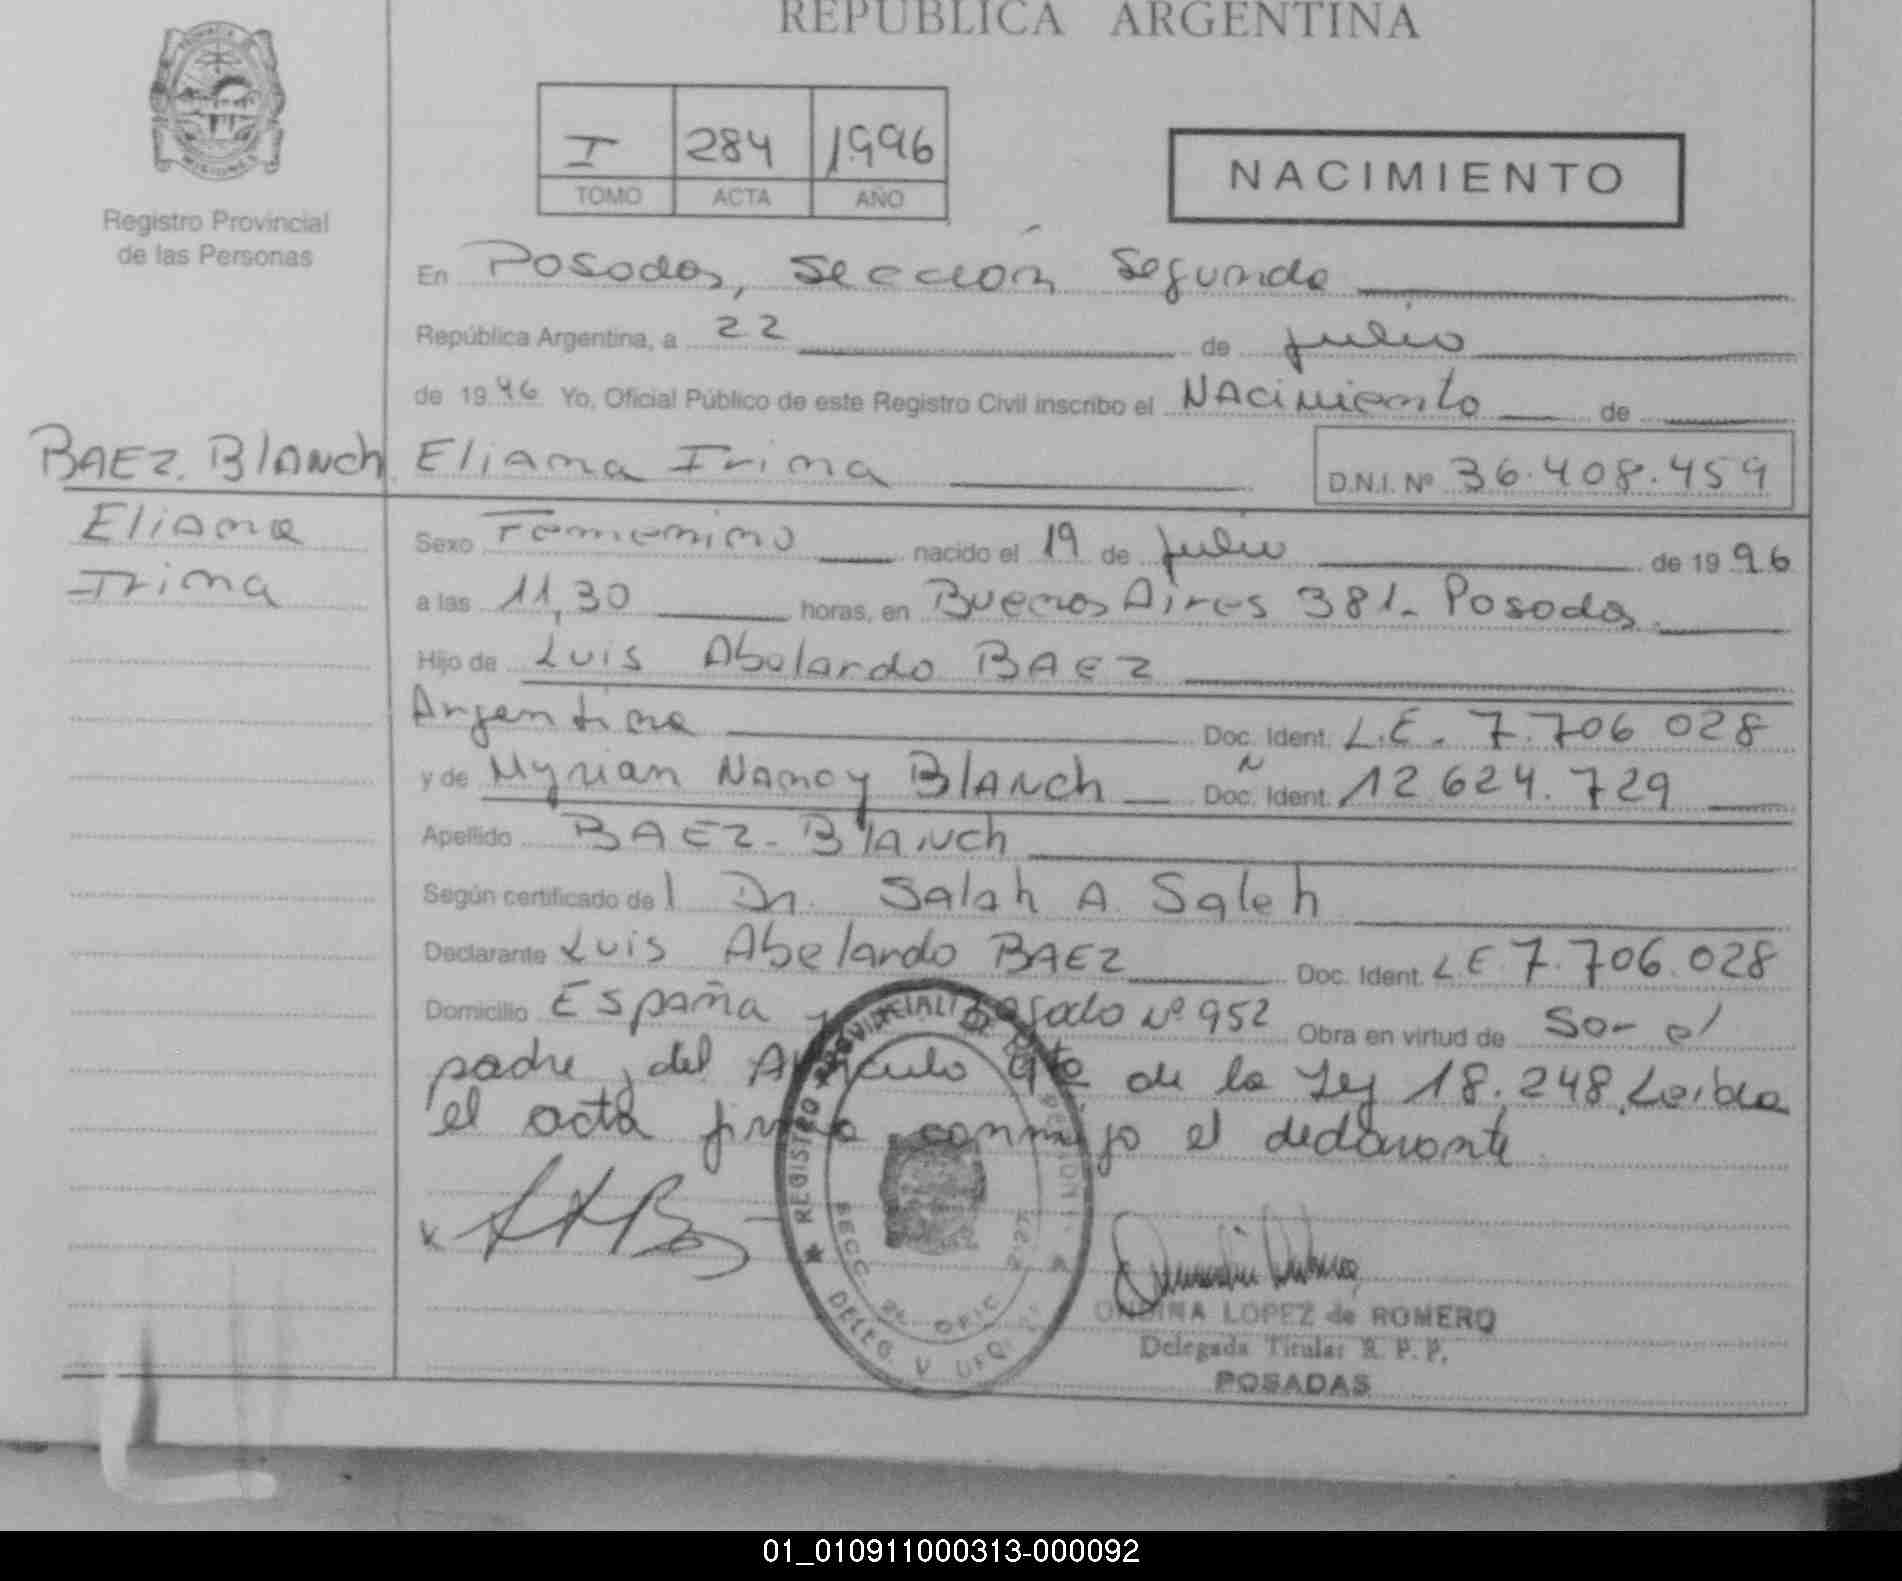 REPUBLICA ARGENTINA
I 284 1996
TOMO ACTA AÑO
NACIMIENTO
Registro Provincial
de las Personas
En Posadas, Sección Segunda
República Argentina, a 22 de julio
de 1996 Yo, Oficial Público de este Registro Civil inscribo el NAcimiento de
BAEZ. BlANch Eliana Irina D.N.I. Nº 36.408.459
Eliana
Irina
Sexo Femenino nacido el 19 de julio de 1996
a las 11,30 horas, en Buenos Aires 381- Posadas
Hijo de Luis Abelardo BAEZ
Argentina Doc. Ident. L.E. 7.706 028
y de Myrian Nancy BlANch Doc. Ident. 12 624.729
Apellido BAEZ- BlANch
Según certificado del Dr. Salah A. Saleh
Declarante Luis Abelardo BAEZ Doc. Ident. L.E 7.706.028
Domicilio España y Nº 952 Obra en virtud de Ser el
padre, del Artículo de la Ley 18.248. Leída
el acta firma conmigo el declarante
REGISTRO PROVINCIAL DE LAS PERSONAS
SECC. 2ª OFIC.
DELEG.
ONDINA LOPEZ de ROMERO
Delegada Titular R. P. P.
POSADAS
01_010911000313-000092